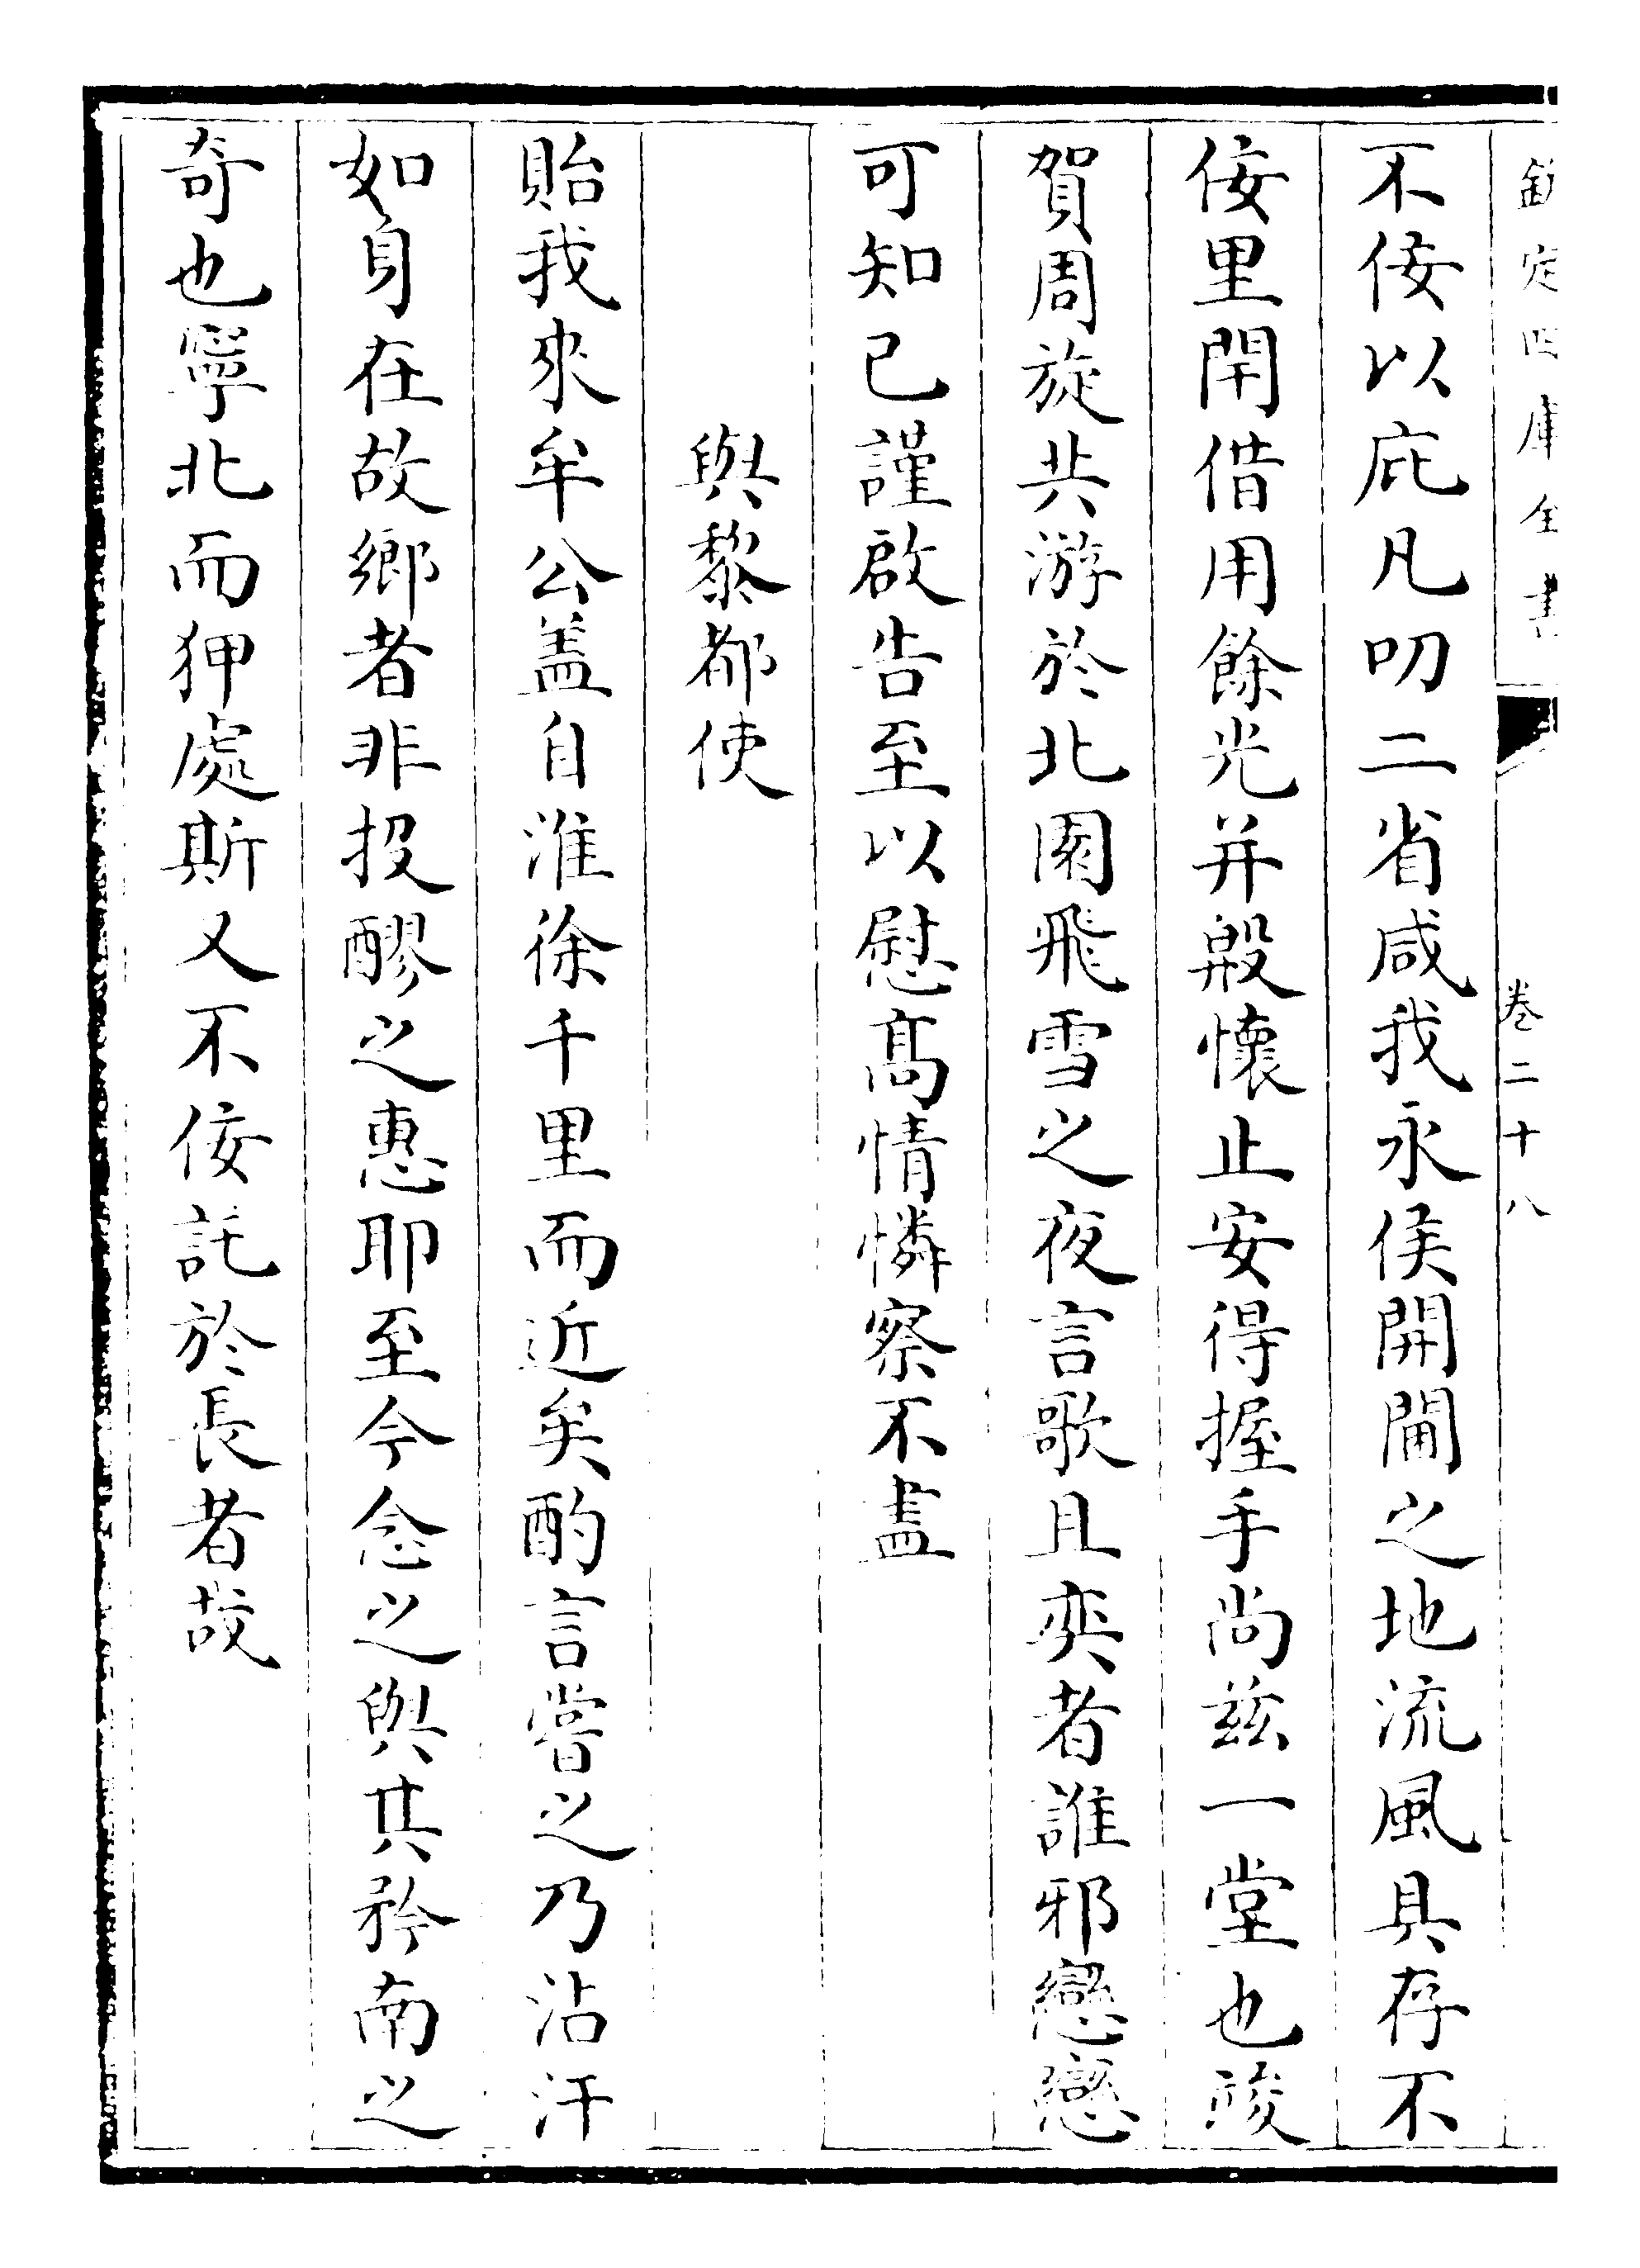 欽定四庫全書
卷二十八
不佞以庇凡叨二省咸我永侯開閫之地流風具存不
佞里閈借用餘光并鞶懷止安得握手尚兹一堂也竣
賀周旋共游於北園飛雪之夜言歌且奕者誰邪戀戀
可知已謹啟告至以慰髙情憐察不盡
與黎都使
貽我來牟公盖自淮徐千里而近矣酌言嘗之乃沾汗
如身在故鄉者非投醪之惠耶至今念之與其矜南之
奇也寧北而狎處斯又不佞託於長者故